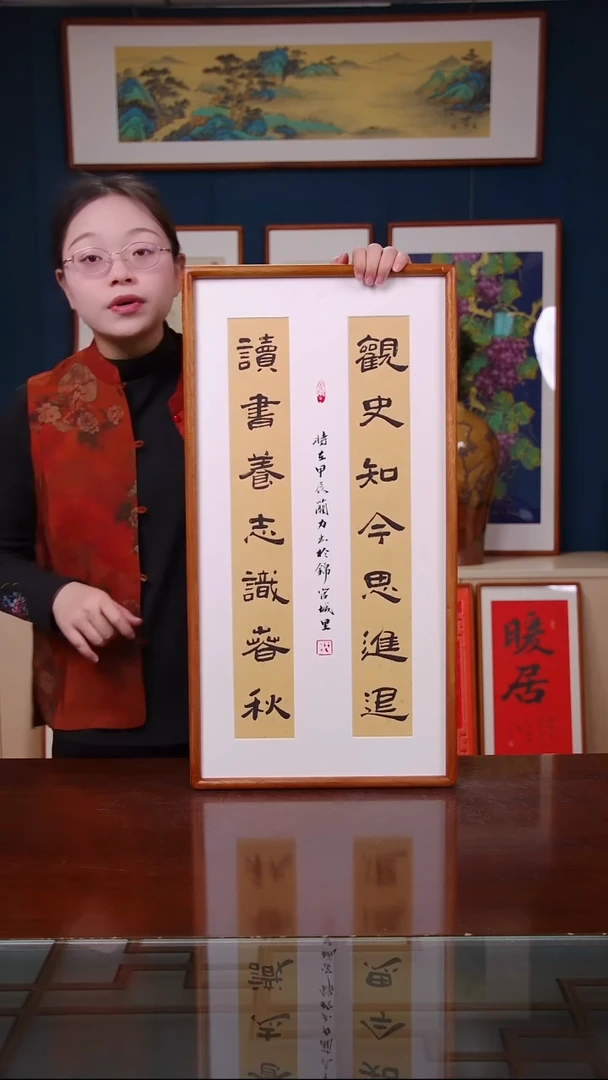 觀史知今思進退
讀書養志識春秋
時在甲辰蘭力書於錦官城里
暖居